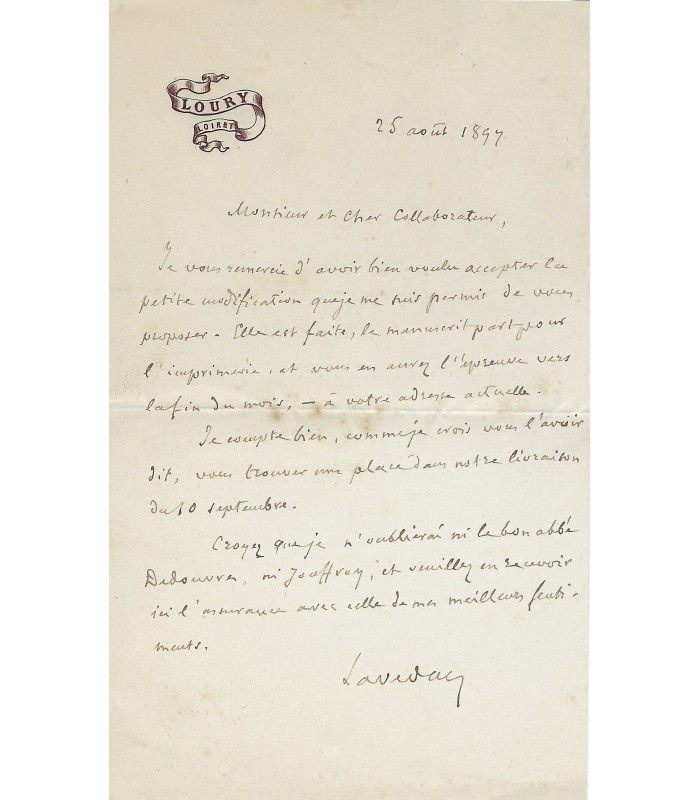 LOURY
LOIRET
25 août 1897
Monsieur et cher Collaborateur,
Je vous remercie d'avoir bien voulu accepter la
petite modification que je me suis permis de vous
proposer. Elle est faite, le manuscrit part pour
l'imprimerie, et vous en aurez l'épreuve vers
la fin du mois, — à votre adresse actuelle.
Je compte bien, comme je crois vous l'avoir
dit, vous trouver une place dans notre livraison
du 10 septembre.
Croyez que je n'oublierai ni le bon abbé
Dedouvres, ni Jouffroy, et veuillez en recevoir
ici l'assurance avec celle de mes meilleurs senti-
ments.
Lavedan